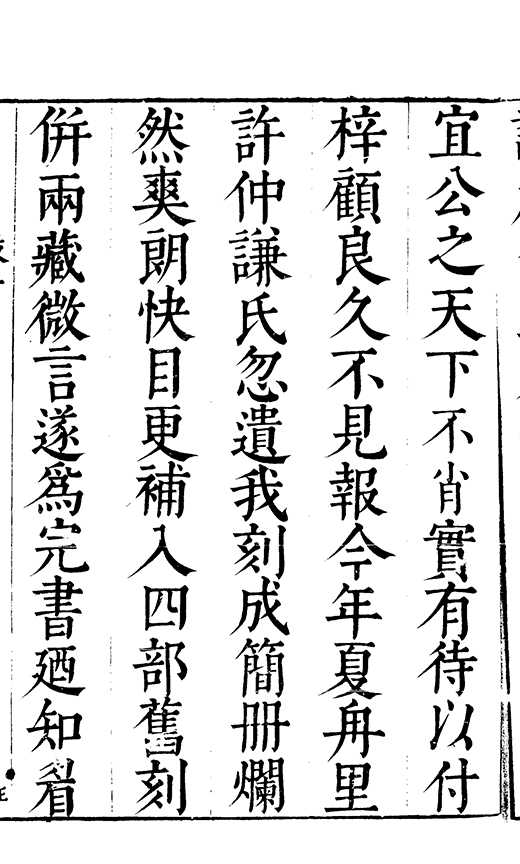 宜公之天下不肖實有待以付
梓顧良久不見報今年夏舟里
許仲謙氏忽遺我刻成簡冊爛
然爽朗快目更補入四部舊刻
併兩藏微言遂爲完書廼知眘